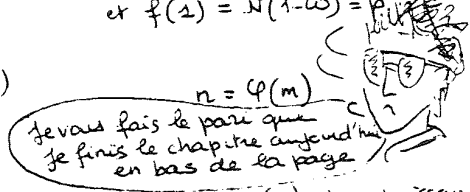 et f(1) = N(1-ω) =
)
n = φ(m)
Je vous fais le pari que
je finis le chapitre aujourd'hui
en bas de la page